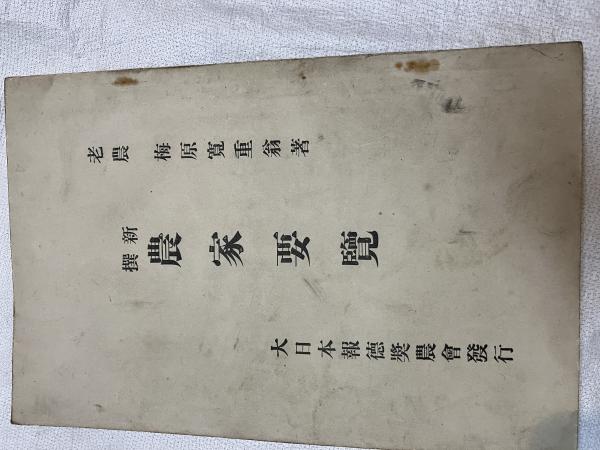 老農 梅原寬重翁著
新撰
農家要覽
大日本報德奬農會發行